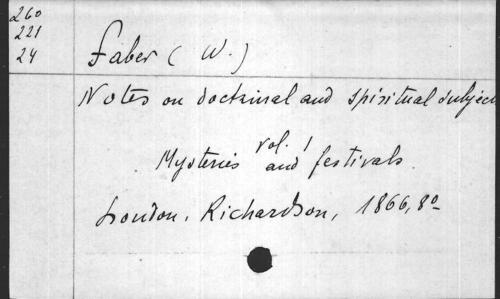 260
221
24
Faber ( W. )
Notes on doctrinal and spiritual subjec
vol. 1
Mysteries and festivals
London, Richardson, 1866, 8º